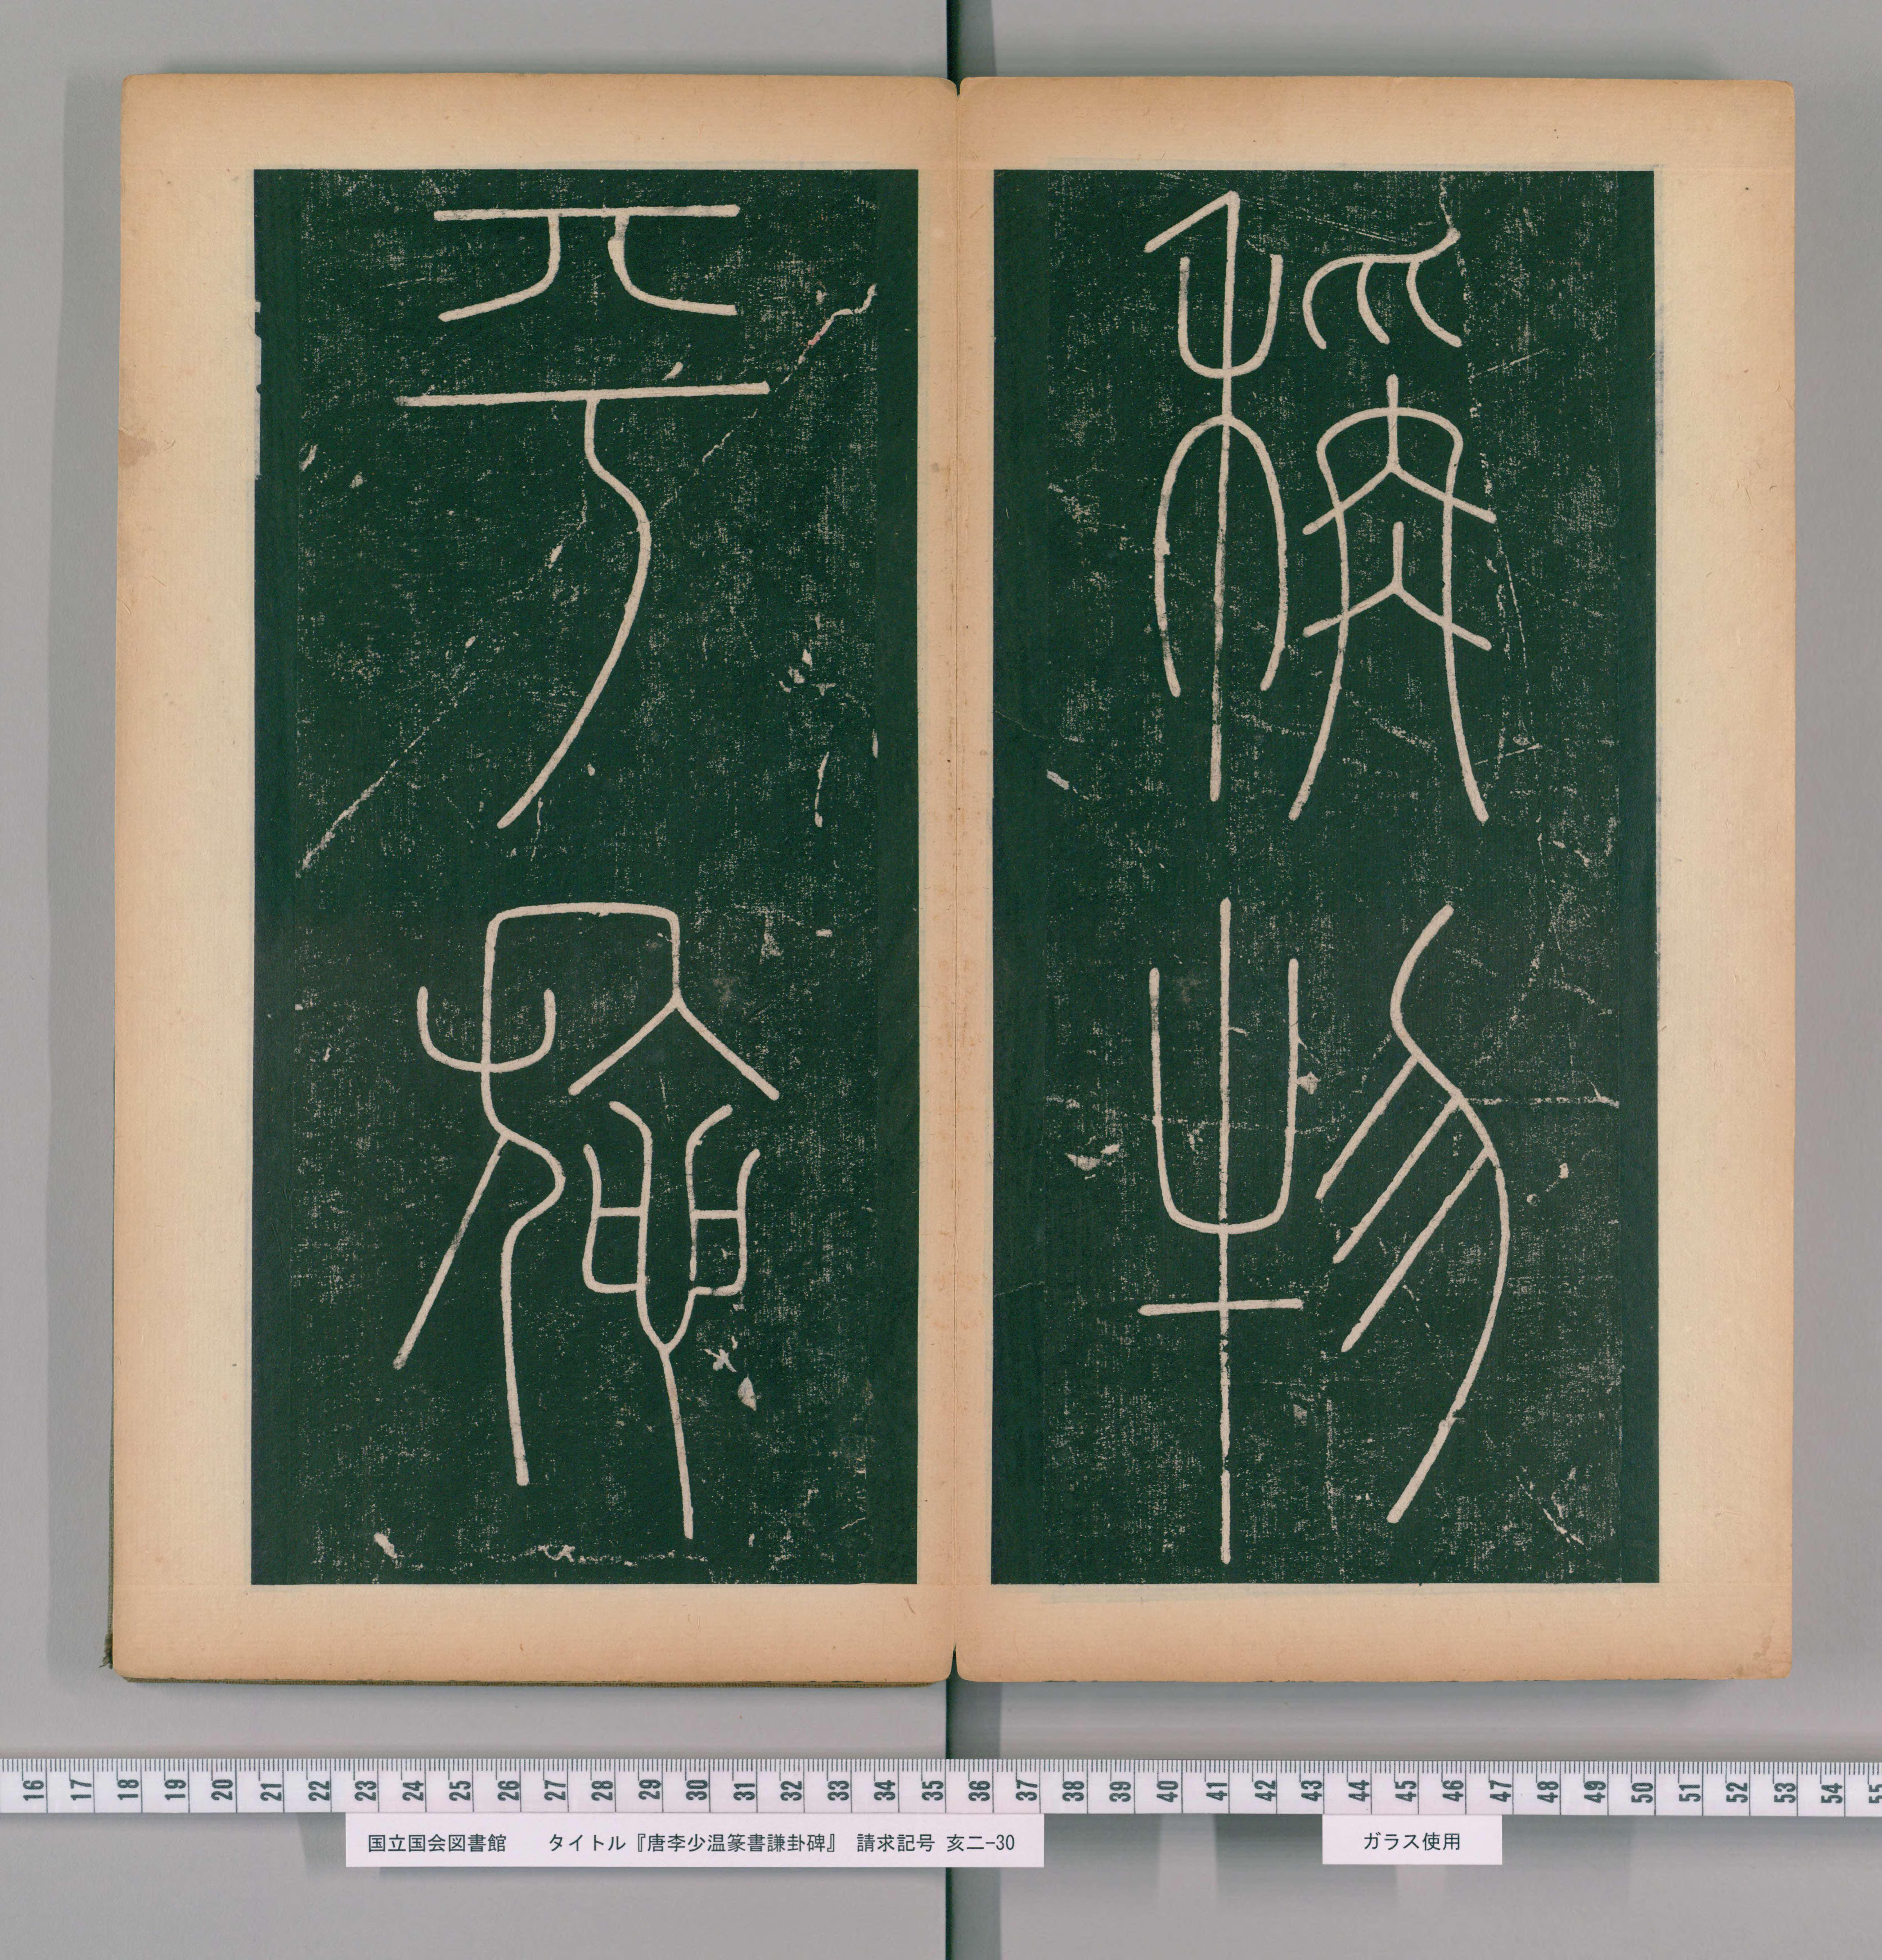 稱物
平施
16 17 18 19 20 21 22 23 24 25 26 27 28 29 30 31 32 33 34 35 36 37 38 39 40 41 42 43 44 45 46 47 48 49 50 51 52 53 54 55
国立国会図書館 タイトル『唐李少温篆書謙卦碑』 請求記号 亥二-30
ガラス使用